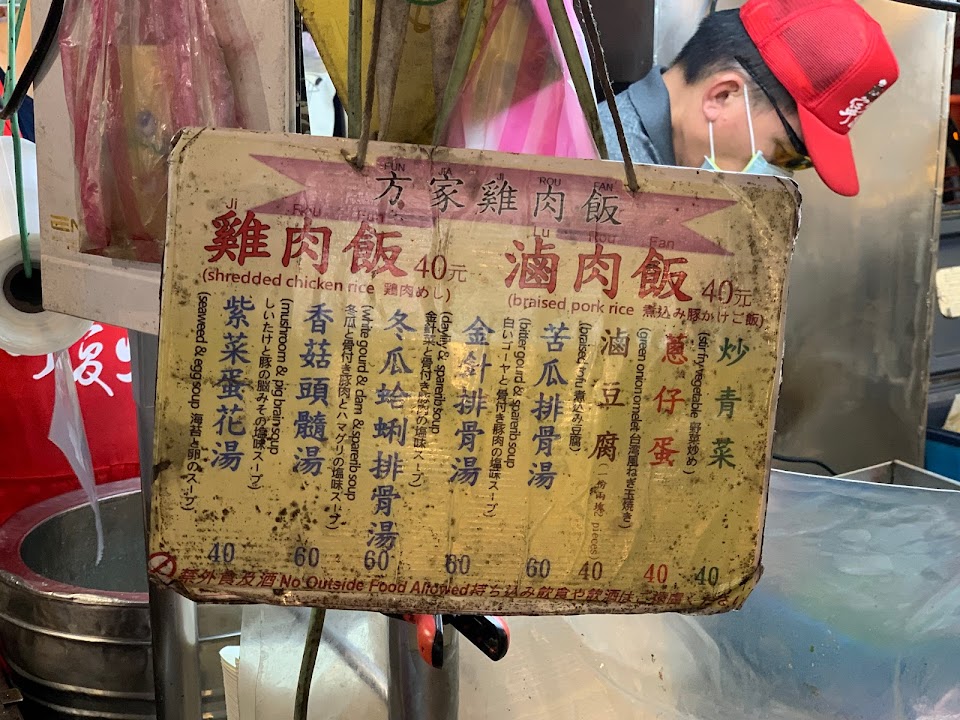 FUN JIA JI ROU FAN
方家雞肉飯
Ji Rou Fun
雞肉飯 40元
(shredded chicken rice 鶏肉めし)
Lu Rou Fan
滷肉飯 40元
(braised pork rice 煮込み豚かけご飯)
炒青菜 40
(stir fry vegetable 野菜炒め)
蔥仔蛋 40
(green onion omelet 台湾風ねぎ玉焼き)
滷豆腐 (一份兩塊 pieces) 40
(braised tofu 煮込み豆腐)
苦瓜排骨湯 60
(bitter gourd & sparerib soup
白いゴーヤと骨付き豚肉の塩味スープ)
金針排骨湯 60
(daylily & sparerib soup
金針菜と骨付き豚肉の塩味スープ)
冬瓜蛤蜊排骨湯 60
(white gourd & clam & sparerib soup
冬瓜と骨付き豚肉とハマグリの塩味スープ)
香菇頭髓湯 60
(mushroom & pig brain soup
しいたけと豚の脳みその塩味スープ)
紫菜蛋花湯 40
(seaweed & egg soup 海苔と卵のスープ)
禁外食及酒 No Outside Food Allowed 持ち込み飲食や飲酒はご遠慮ください